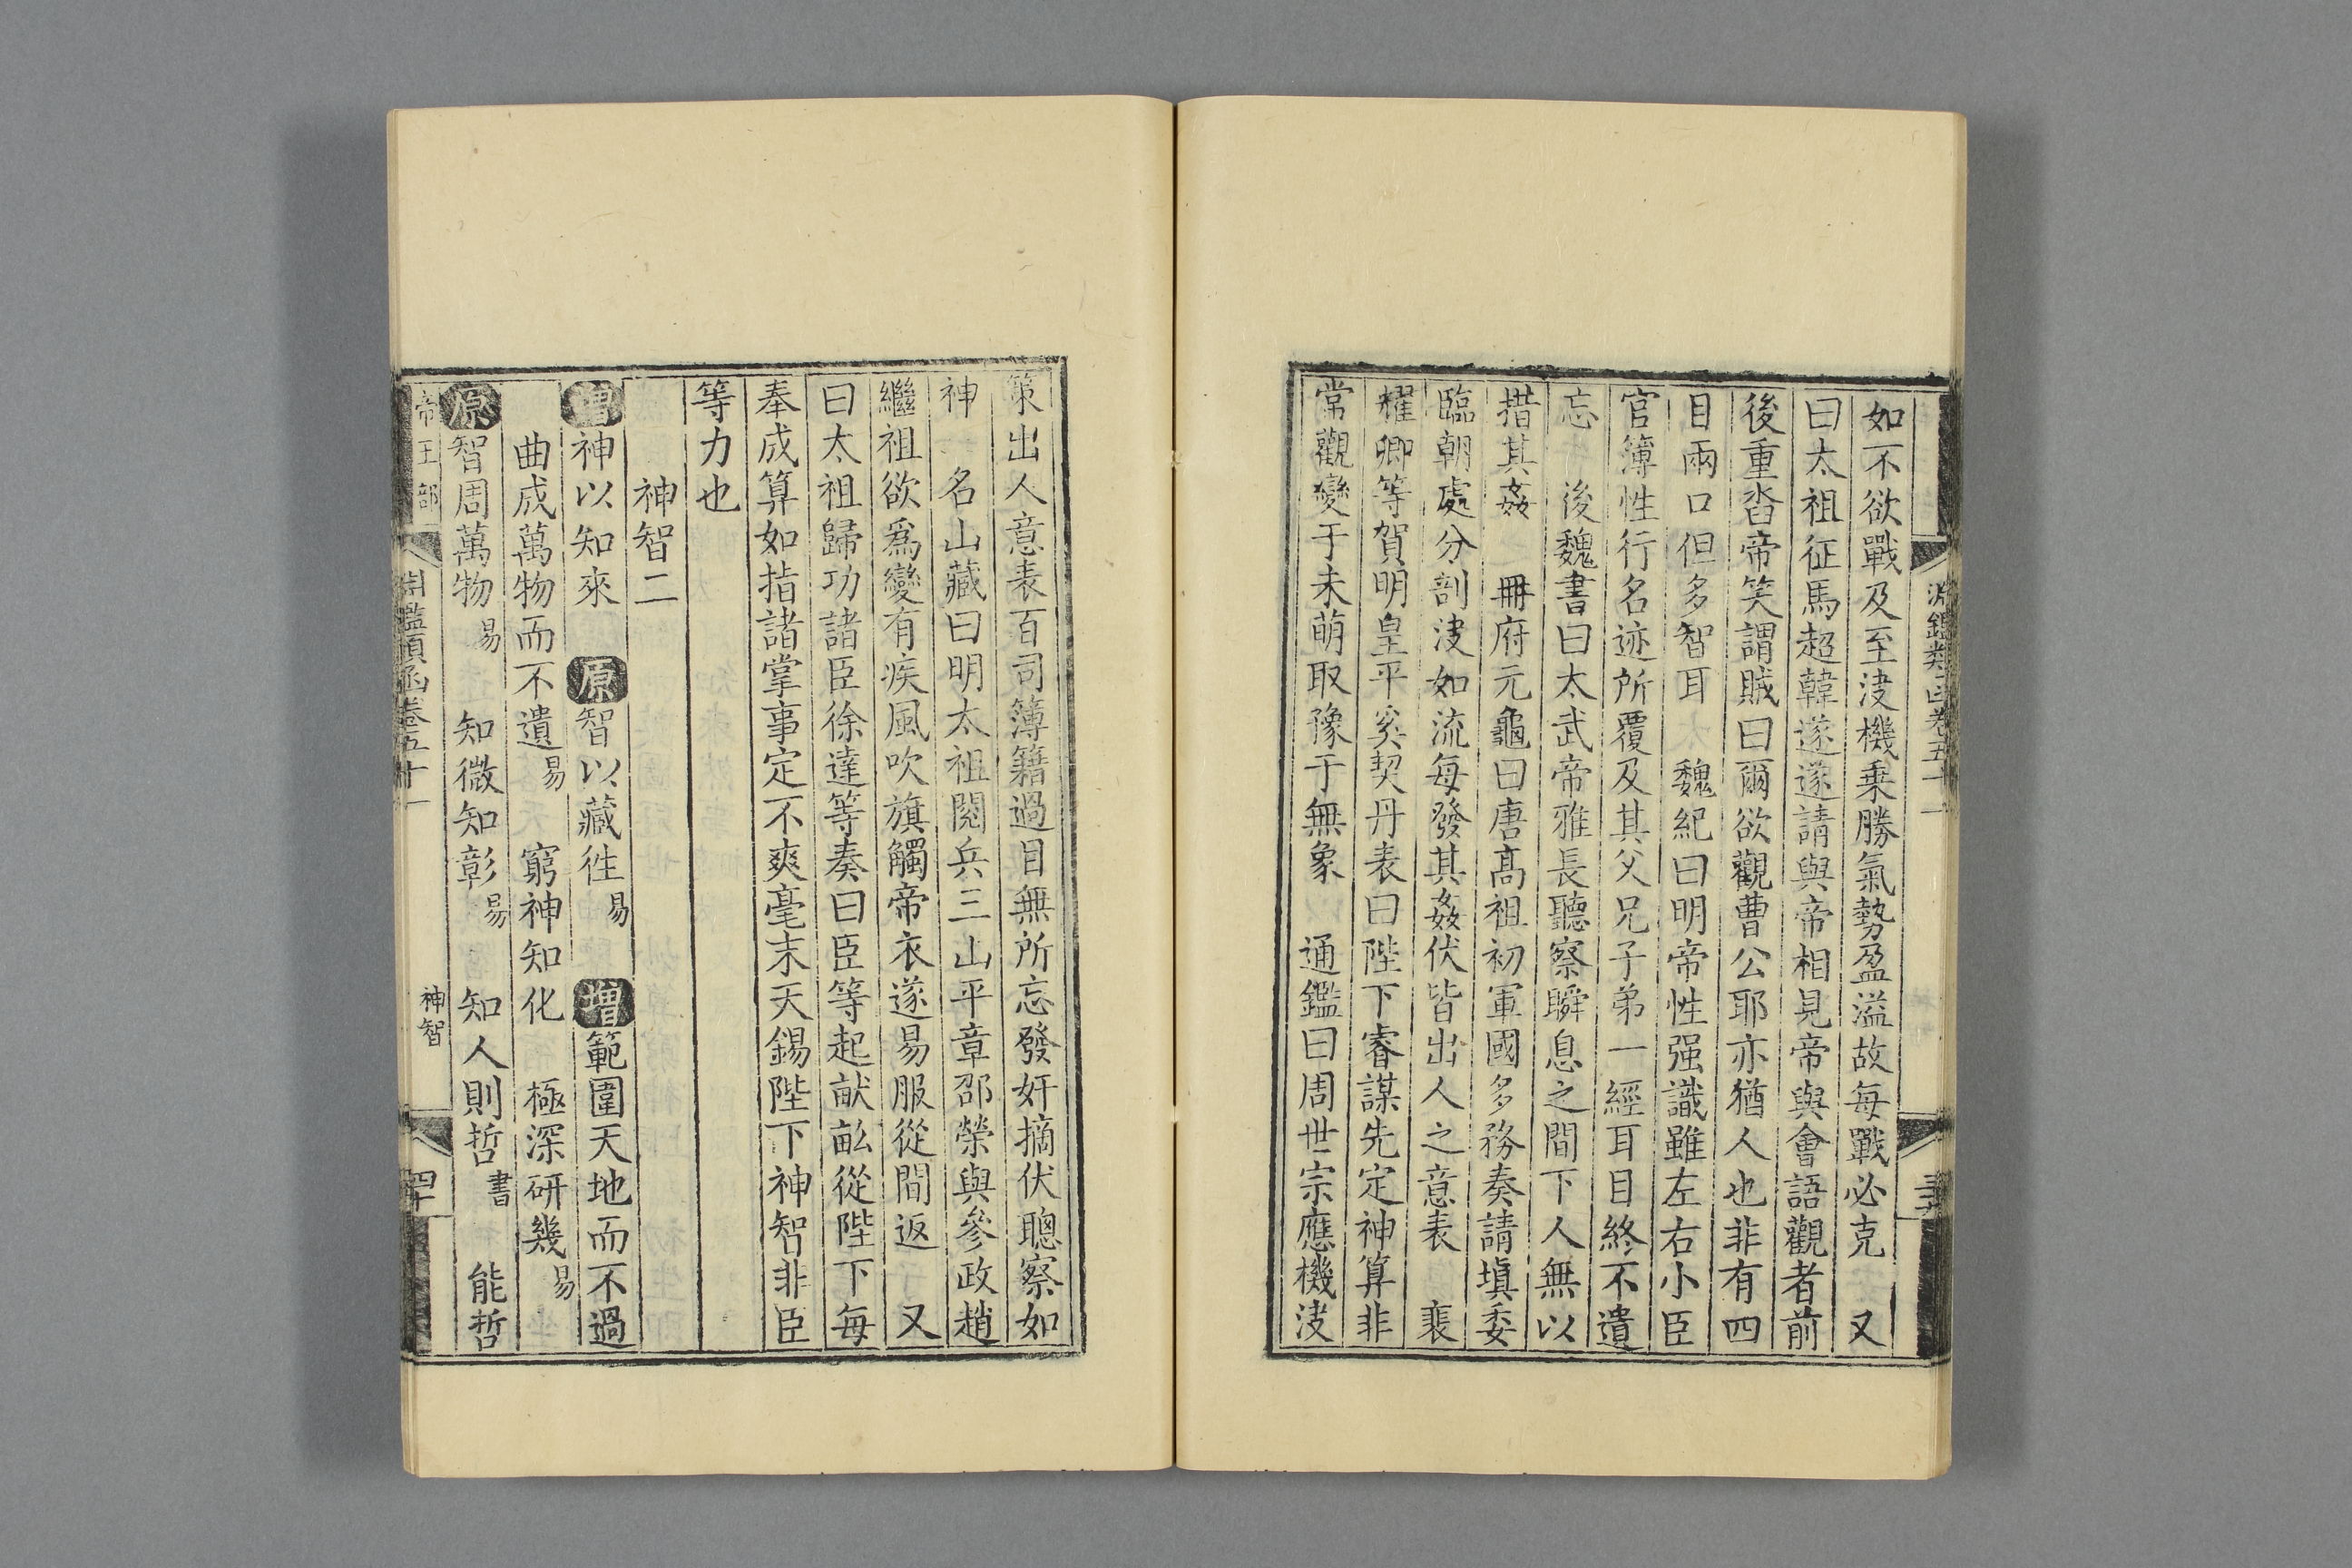 淵鑑類函卷五十一
如不欲戰及至決機乗勝氣勢盈溢故每戰必克 又
曰太祖征馬超韓遂遂請與帝相見帝與會語觀者前
後重沓帝笑謂賊曰爾欲觀曹公耶亦猶人也非有四
目兩口但多智耳 魏紀曰明帝性强識雖左右小臣
官簿性行名迹所履及其父兄子弟一經耳目終不遺
忘 後魏書曰太武帝雅長聽察瞬息之間下人無以
措其姦 冊府元龜曰唐髙祖初軍國多務奏請塡委
臨朝處分剖決如流每發其姦伏皆出人之意表 裴
耀卿等賀明皇平奚契丹表曰陛下睿謀先定神算非
常觀變于未萌取豫于無象 通鑑曰周世宗應機決
策出人意表百司簿籍過目無所忘發奸摘伏聰察如
神 名山藏曰明太祖閱兵三山平章邵榮與參政趙
繼祖欲爲變有疾風吹旗觸帝衣遂易服從間返 又
曰太祖歸功諸臣徐達等奏曰臣等起畎畝從陛下每
奉成算如指諸掌事定不爽毫末天錫陛下神智非臣
等力也
神智二
增神以知來 原智以藏徃易 增範圍天地而不過
曲成萬物而不遺易 窮神知化 極深研幾易
原智周萬物易 知微知彰易 知人則哲書 能哲
帝王部 淵鑑類函卷五十一 神智 四十